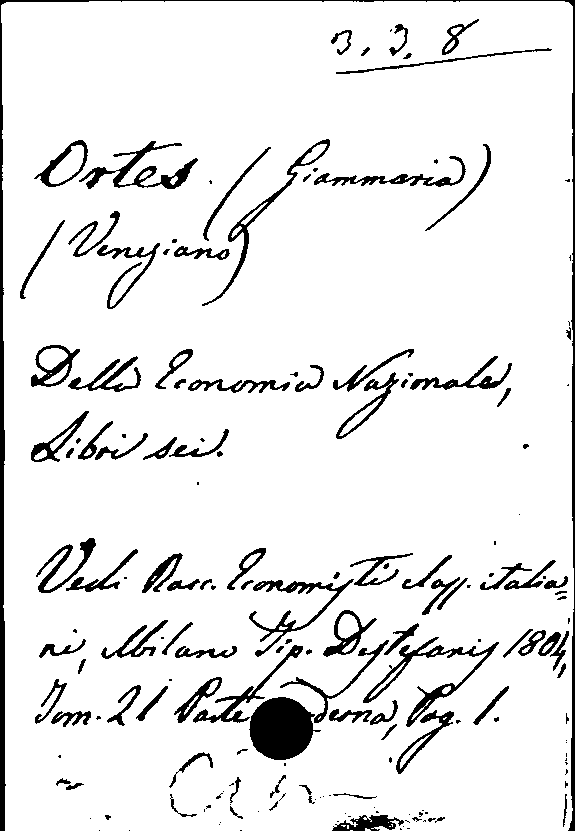 3. 3. 8
Ortes. (Giammaria)
(Veneziano)
Della Economia Nazionale,
Libri sei.
Vedi Racc. Economisti class. italia=
ni, Milano Tip. Destefanis 1804,
Tom. 21 Parte Moderna, Pag. 1.